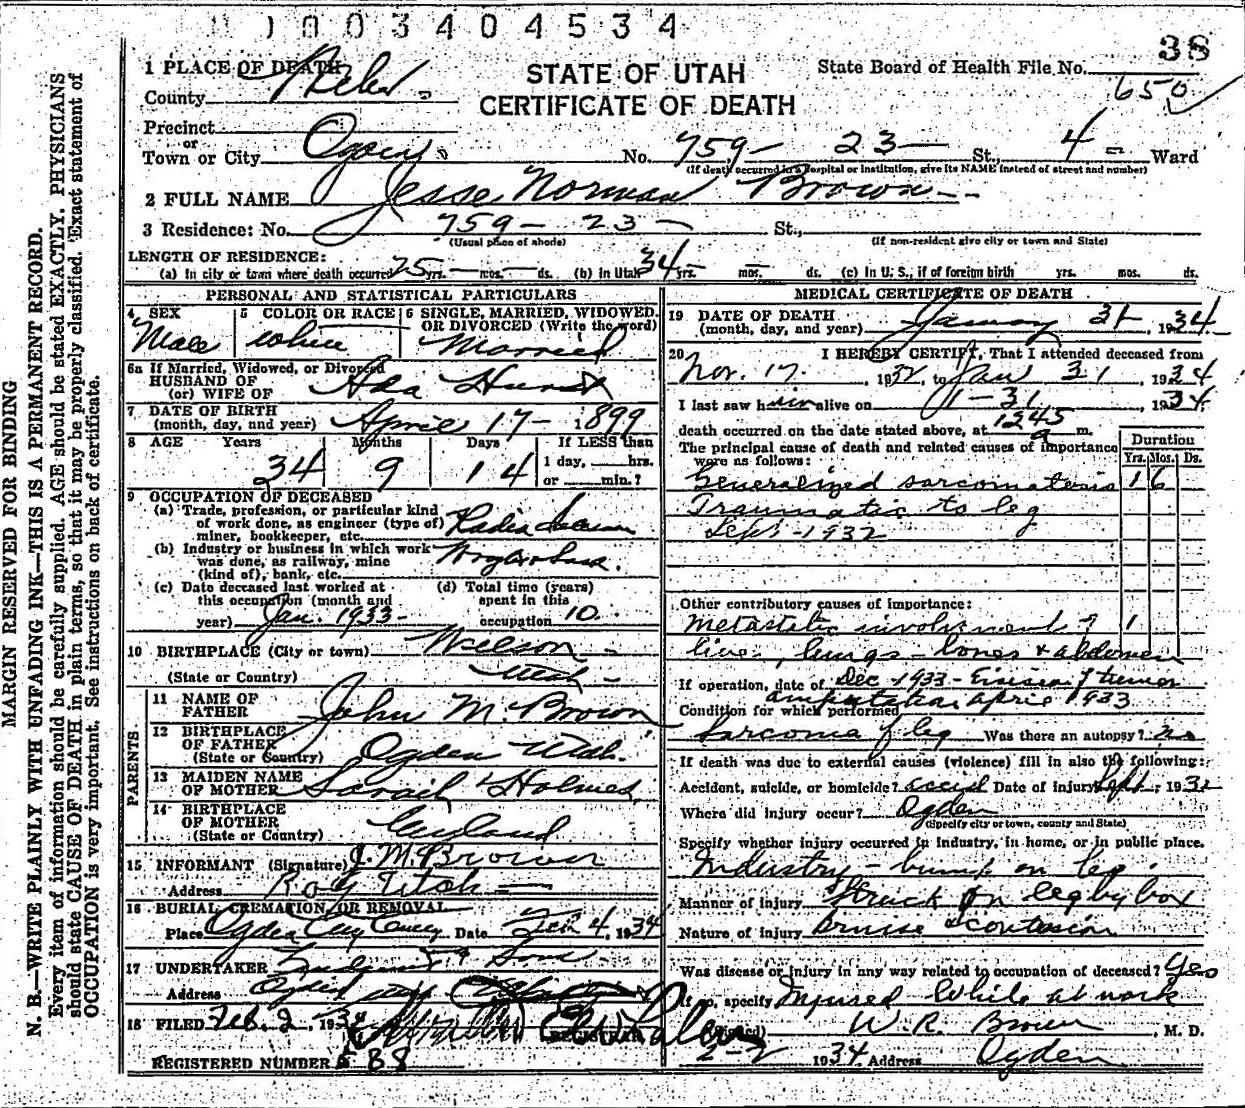 1003404534
38
1 PLACE OF DEATH
STATE OF UTAH
State Board of Health File No.
650
County Weber
CERTIFICATE OF DEATH
Precinct
or
Town or City Ogden No. 759- 23- St., 4- Ward
(If death occurred in a hospital or institution, give its NAME instead of street and number)
2 FULL NAME Jesse Norman Brown
3 Residence: No. 759- 23- St.,
(Usual place of abode) (If non-resident give city or town and State)
LENGTH OF RESIDENCE:
(a) In city or town where death occurred 25 yrs. mos. ds. (b) in Utah 34 yrs. mos. ds. (c) in U. S., if of foreign birth yrs. mos. ds.
PERSONAL AND STATISTICAL PARTICULARS
4 SEX 5 COLOR OR RACE 6 SINGLE, MARRIED, WIDOWED,
OR DIVORCED (Write the word)
Male white Married
6a If Married, Widowed, or Divorced
HUSBAND OF
(or) WIFE OF Ada Hurst
7 DATE OF BIRTH
(month, day, and year) April 17- 1899
8 AGE Years Months Days If LESS than
1 day, hrs.
34 9 14 or min.?
9 OCCUPATION OF DECEASED
(a) Trade, profession, or particular kind
of work done, as engineer (type of)
miner, bookkeeper, etc. Radio
(b) Industry or business in which work
was done, as railway, mine
(kind of), bank, etc.
(c) Date deceased last worked at (d) Total time (years)
this occupation (month and spent in this
year) Jan. 1933- occupation 10.
10 BIRTHPLACE (City or town) Wilson
(State or Country) Utah
PARENTS
11 NAME OF
FATHER John M. Brown
12 BIRTHPLACE
OF FATHER
(State or Country) Ogden Utah.
13 MAIDEN NAME
OF MOTHER Sarah Holmes
14 BIRTHPLACE
OF MOTHER
(State or Country) England
15 INFORMANT (Signature) J. M. Brown
Address Roy Utah
16 BURIAL CREMATION OR REMOVAL
Place Ogden City Date Feb 4, 1934
17 UNDERTAKER & Son
Address Ogden
18 FILED Feb. 2, 1934
REGISTRAR
REGISTERED NUMBER 88
MEDICAL CERTIFICATE OF DEATH
19 DATE OF DEATH
(month, day, and year) January 31- 1934
20 I HEREBY CERTIFY, That I attended deceased from
Nov. 17. 1932, to Jan 31, 1934
I last saw him alive on 1-31, 1934
death occurred on the date stated above, at 1245 a m.
The principal cause of death and related causes of importance
were as follows:
Duration
Yrs. Mos. Ds.
Generalized sarcomatosis 1 6
Traumatic to leg
Sept-1932
Other contributory causes of importance:
Metastatic involvement of 1
liver, lungs - bones & abdomen
If operation, date of Dec-1933- Excision of tumor
amputation April 1933
Condition for which performed
Sarcoma of leg Was there an autopsy? no
If death was due to external causes (violence) fill in also the following:
Accident, suicide, or homicide? accid Date of injury Sept, 1932
Where did injury occur? Ogden
(Specify city or town, county and State)
Specify whether injury occurred in industry, in home, or in public place.
Industry - bump on leg
Manner of injury Struck on leg by box
Nature of injury bruise & contusion
Was disease or injury in any way related to occupation of deceased? Yes
If so, specify Injured while at work
(Signed) W. R. Brown M. D.
2-2 1934 Address Ogden
MARGIN RESERVED FOR BINDING
N. B.—WRITE PLAINLY WITH UNFADING INK—THIS IS A PERMANENT RECORD.
Every item of information should be carefully supplied. AGE should be stated EXACTLY. PHYSICIANS
should state CAUSE OF DEATH in plain terms, so that it may be properly classified. Exact statement of
OCCUPATION is very important. See instructions on back of certificate.